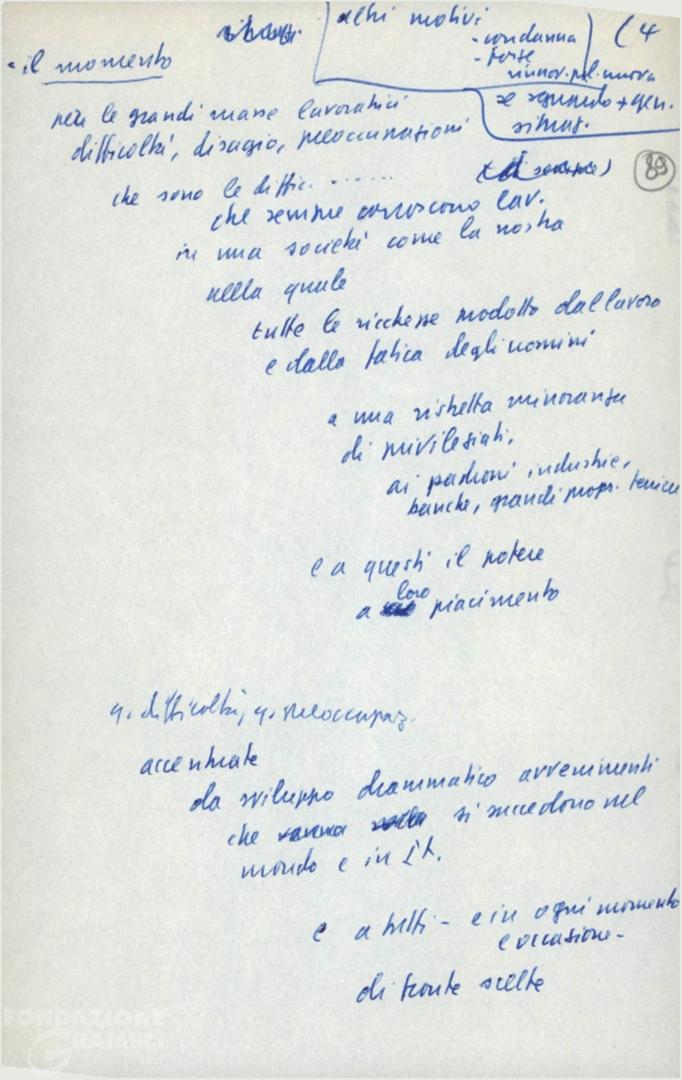 altri motivi
- condanna
- forse
rinnov. pol. nuova
(4
- il momento
se
situaz.
per le grandi masse lavoratrici
difficoltà, disagio, preoccupazioni
89
che sono le diffic. ......
che sempre conoscono lav.
in una società come la nostra
nella quale
tutte le ricchezze prodotte dal lavoro
e dalla fatica degli uomini
a una ristretta minoranza
di privilegiati,
ai padroni industrie,
banche, grandi propr. terrieri
e a questi il potere
loro
a piacimento
q. difficoltà, q. preoccupaz.
accentuate
da sviluppo drammatico avvenimenti
che si succedono nel
mondo e in It.
e a tutti - e in ogni momento
e occasione -
di fronte scelte
FONDAZIONE
GRAMSCI